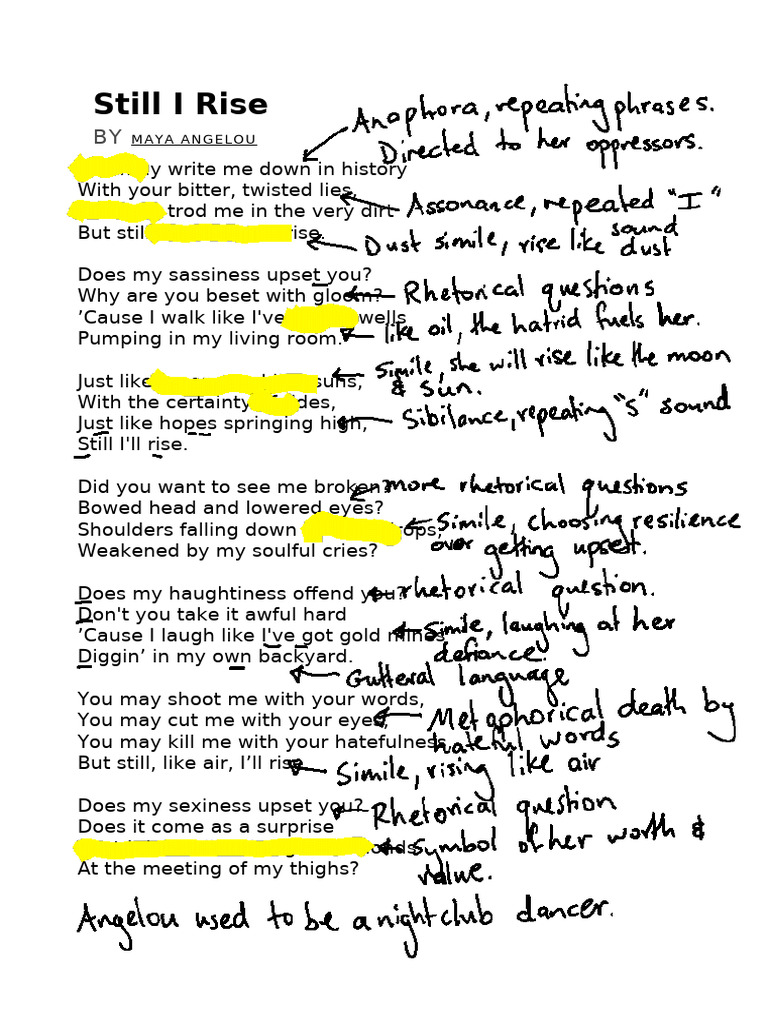 Still I Rise
BY MAYA ANGELOU
Anaphora, repeating phrases.
Directed to her oppressors.
write me down in history
With your bitter, twisted lies,
Assonance, repeated "I"
sound
trod me in the very dirt
But stil rise.
Dust simile, rise like dust
Does my sassiness upset you?
Why are you beset with gloom?
Rhetorical questions
’Cause I walk like I've wells
Pumping in my living room.
like oil, the hatrid fuels her.
Just like suns,
Simile, she will rise like the moon
& sun.
With the certainty
Just like hopes springing high,
Sibilance, repeating "S" sound
Still I'll rise.
Did you want to see me broken?
more rhetorical questions
Bowed head and lowered eyes?
Shoulders falling down
Simile, choosing resilience
over getting upset.
Weakened by my soulful cries?
Does my haughtiness offend you?
rhetorical question.
Don't you take it awful hard
’Cause I laugh like I've got gold mines
Simile, laughing at her
defiance.
Diggin’ in my own backyard.
Gutteral language
You may shoot me with your words,
You may cut me with your eyes,
Metaphorical death by
hateful words
You may kill me with your hatefulness,
But still, like air, I’ll rise.
Simile, rising like air
Does my sexiness upset you?
Rhetorical question
Does it come as a surprise
Symbol of her worth &
value.
At the meeting of my thighs?
Angelou used to be a nightclub dancer.